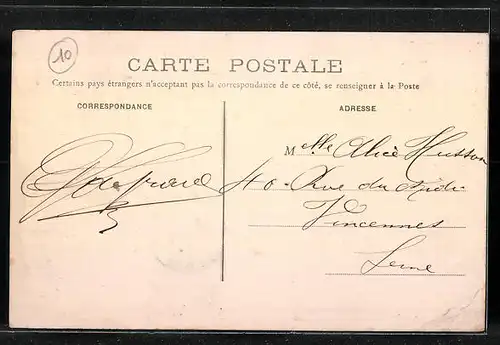 10
CARTE POSTALE
Certains pays étrangers n'acceptant pas la correspondance de ce côté, se renseigner à la Poste
CORRESPONDANCE
ADRESSE
Mlle Alice Husson
40 - Rue du Midi
Vincennes
Seine